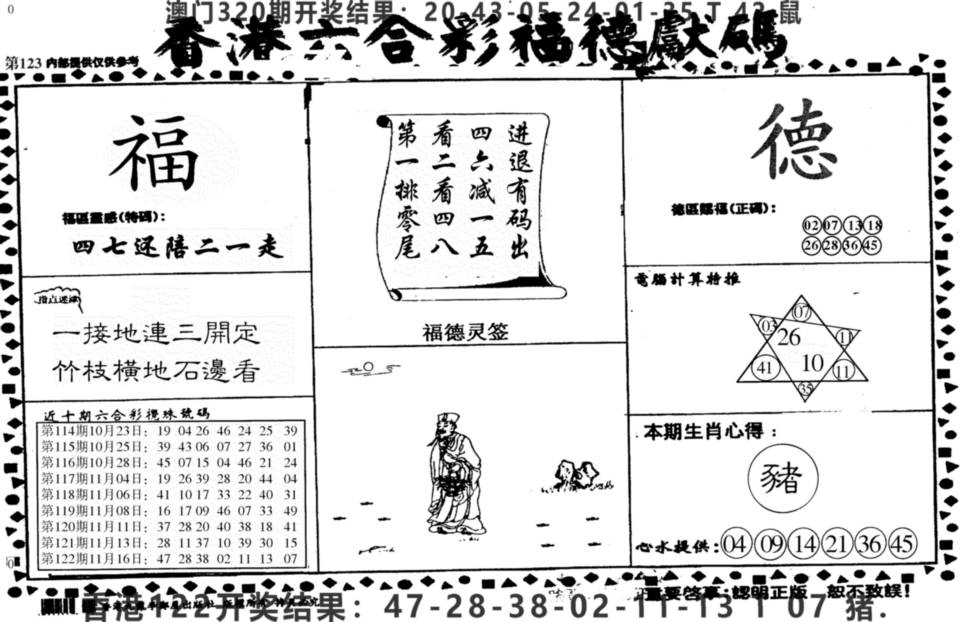 澳门320期开奖结果：20-43-05-24-01-35 T 42 鼠
香港六合彩福德獻碼
第123 内部提供仅供参考
福
福區靈感(特碼)：
四七还陪二一走
指点迷津
一接地連三開定
竹枝橫地石邊看
近十期六合彩攪珠號碼
第114期10月23日：19 04 26 46 24 25 39
第115期10月25日：39 43 06 07 27 36 01
第116期10月28日：45 07 15 04 46 21 24
第117期11月04日：19 26 39 28 20 44 04
第118期11月06日：41 10 17 33 22 40 31
第119期11月08日：16 17 09 46 07 33 49
第120期11月11日：37 28 20 40 38 18 41
第121期11月13日：28 11 37 10 39 30 15
第122期11月16日：47 28 38 02 11 13 07
进退有码出
四六减一五
看二看四八
第一排零尾
福德灵签
德
德區賜福(正碼)：
02 07 13 18
26 28 36 45
電腦計算特推
07
03 26 11
41 10 11
35
本期生肖心得：
豬
心水提供：04 09 14 21 36 45
重要啓事：認明正版 恕不致誤！
香港122开奖结果：47-28-38-02-11-13 T 07 猪.